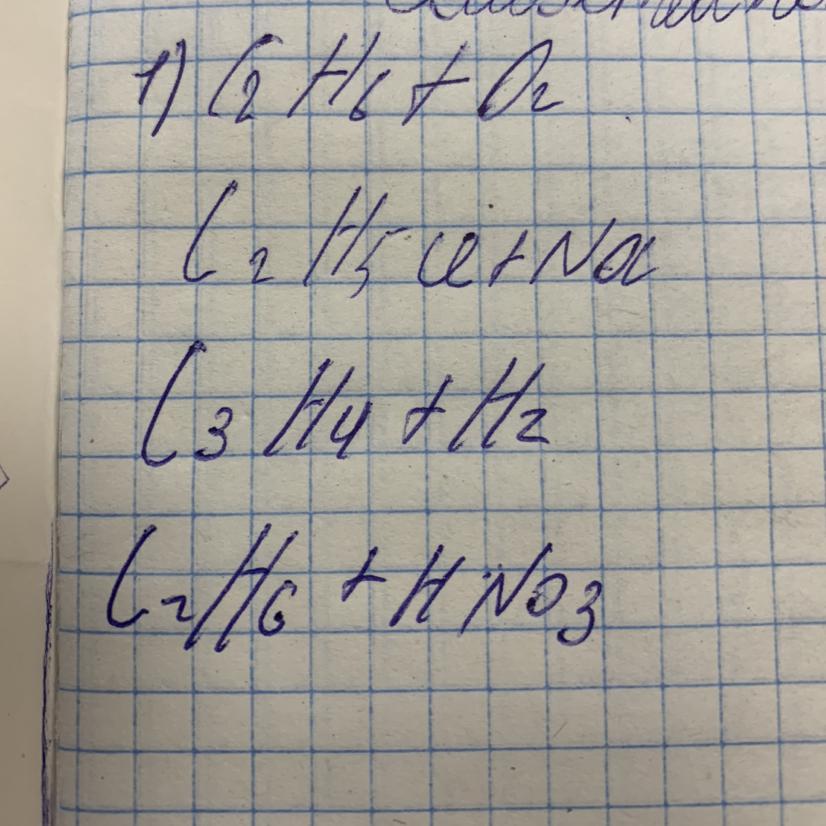 1) C2H6 + O2
C2H5Cl + Na
C3H4 + H2
C2H6 + HNO3